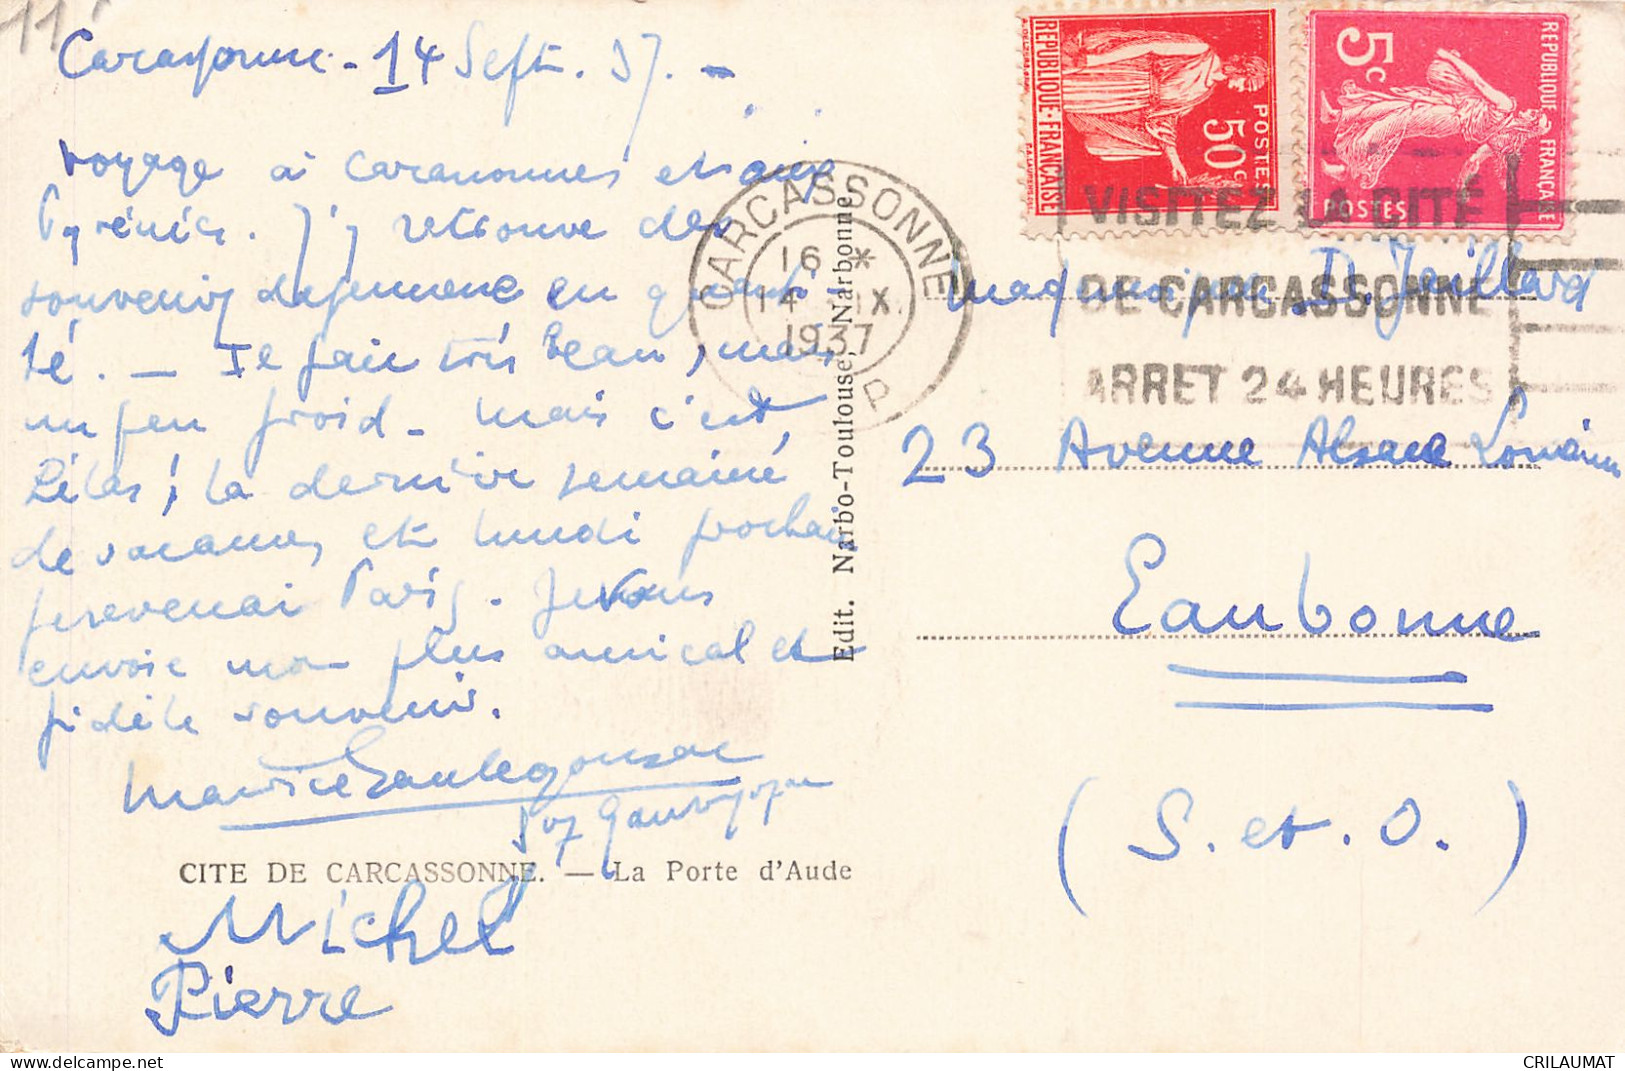 11
Carcassonne - 14 Sept. 37. -
voyage à Carcassonnes et aux
Pyrénées. J'y retrouve des
souvenirs de jeunesse en quanti
té. _ Il fait très beau, mais
un peu froid - mais c'est,
hélas ! la dernière semaine
de vacances et lundi prochain
je revenai Paris. Je vous
envoie mon plus amical et
fidèle souvenir.
Maurice
CITE DE CARCASSONNE. — La Porte d'Aude
Michel
Pierre
Edit. Narbo-Toulouse, Narbonne.
CARCASSONNE
16 *
14 IX
1937
P
REPUBLIQUE · FRANÇAISE
POSTES
50c
5c
REPUBLIQUE FRANÇAISE
POSTES
VISITEZ LA CITÉ
DE CARCASSONNE
ARRET 24 HEURES
D. Jaillard
23 Avenue Alsace Lorraine
Eaubonne
(S. et. O.)
delcampe.net
CRILAUMAT